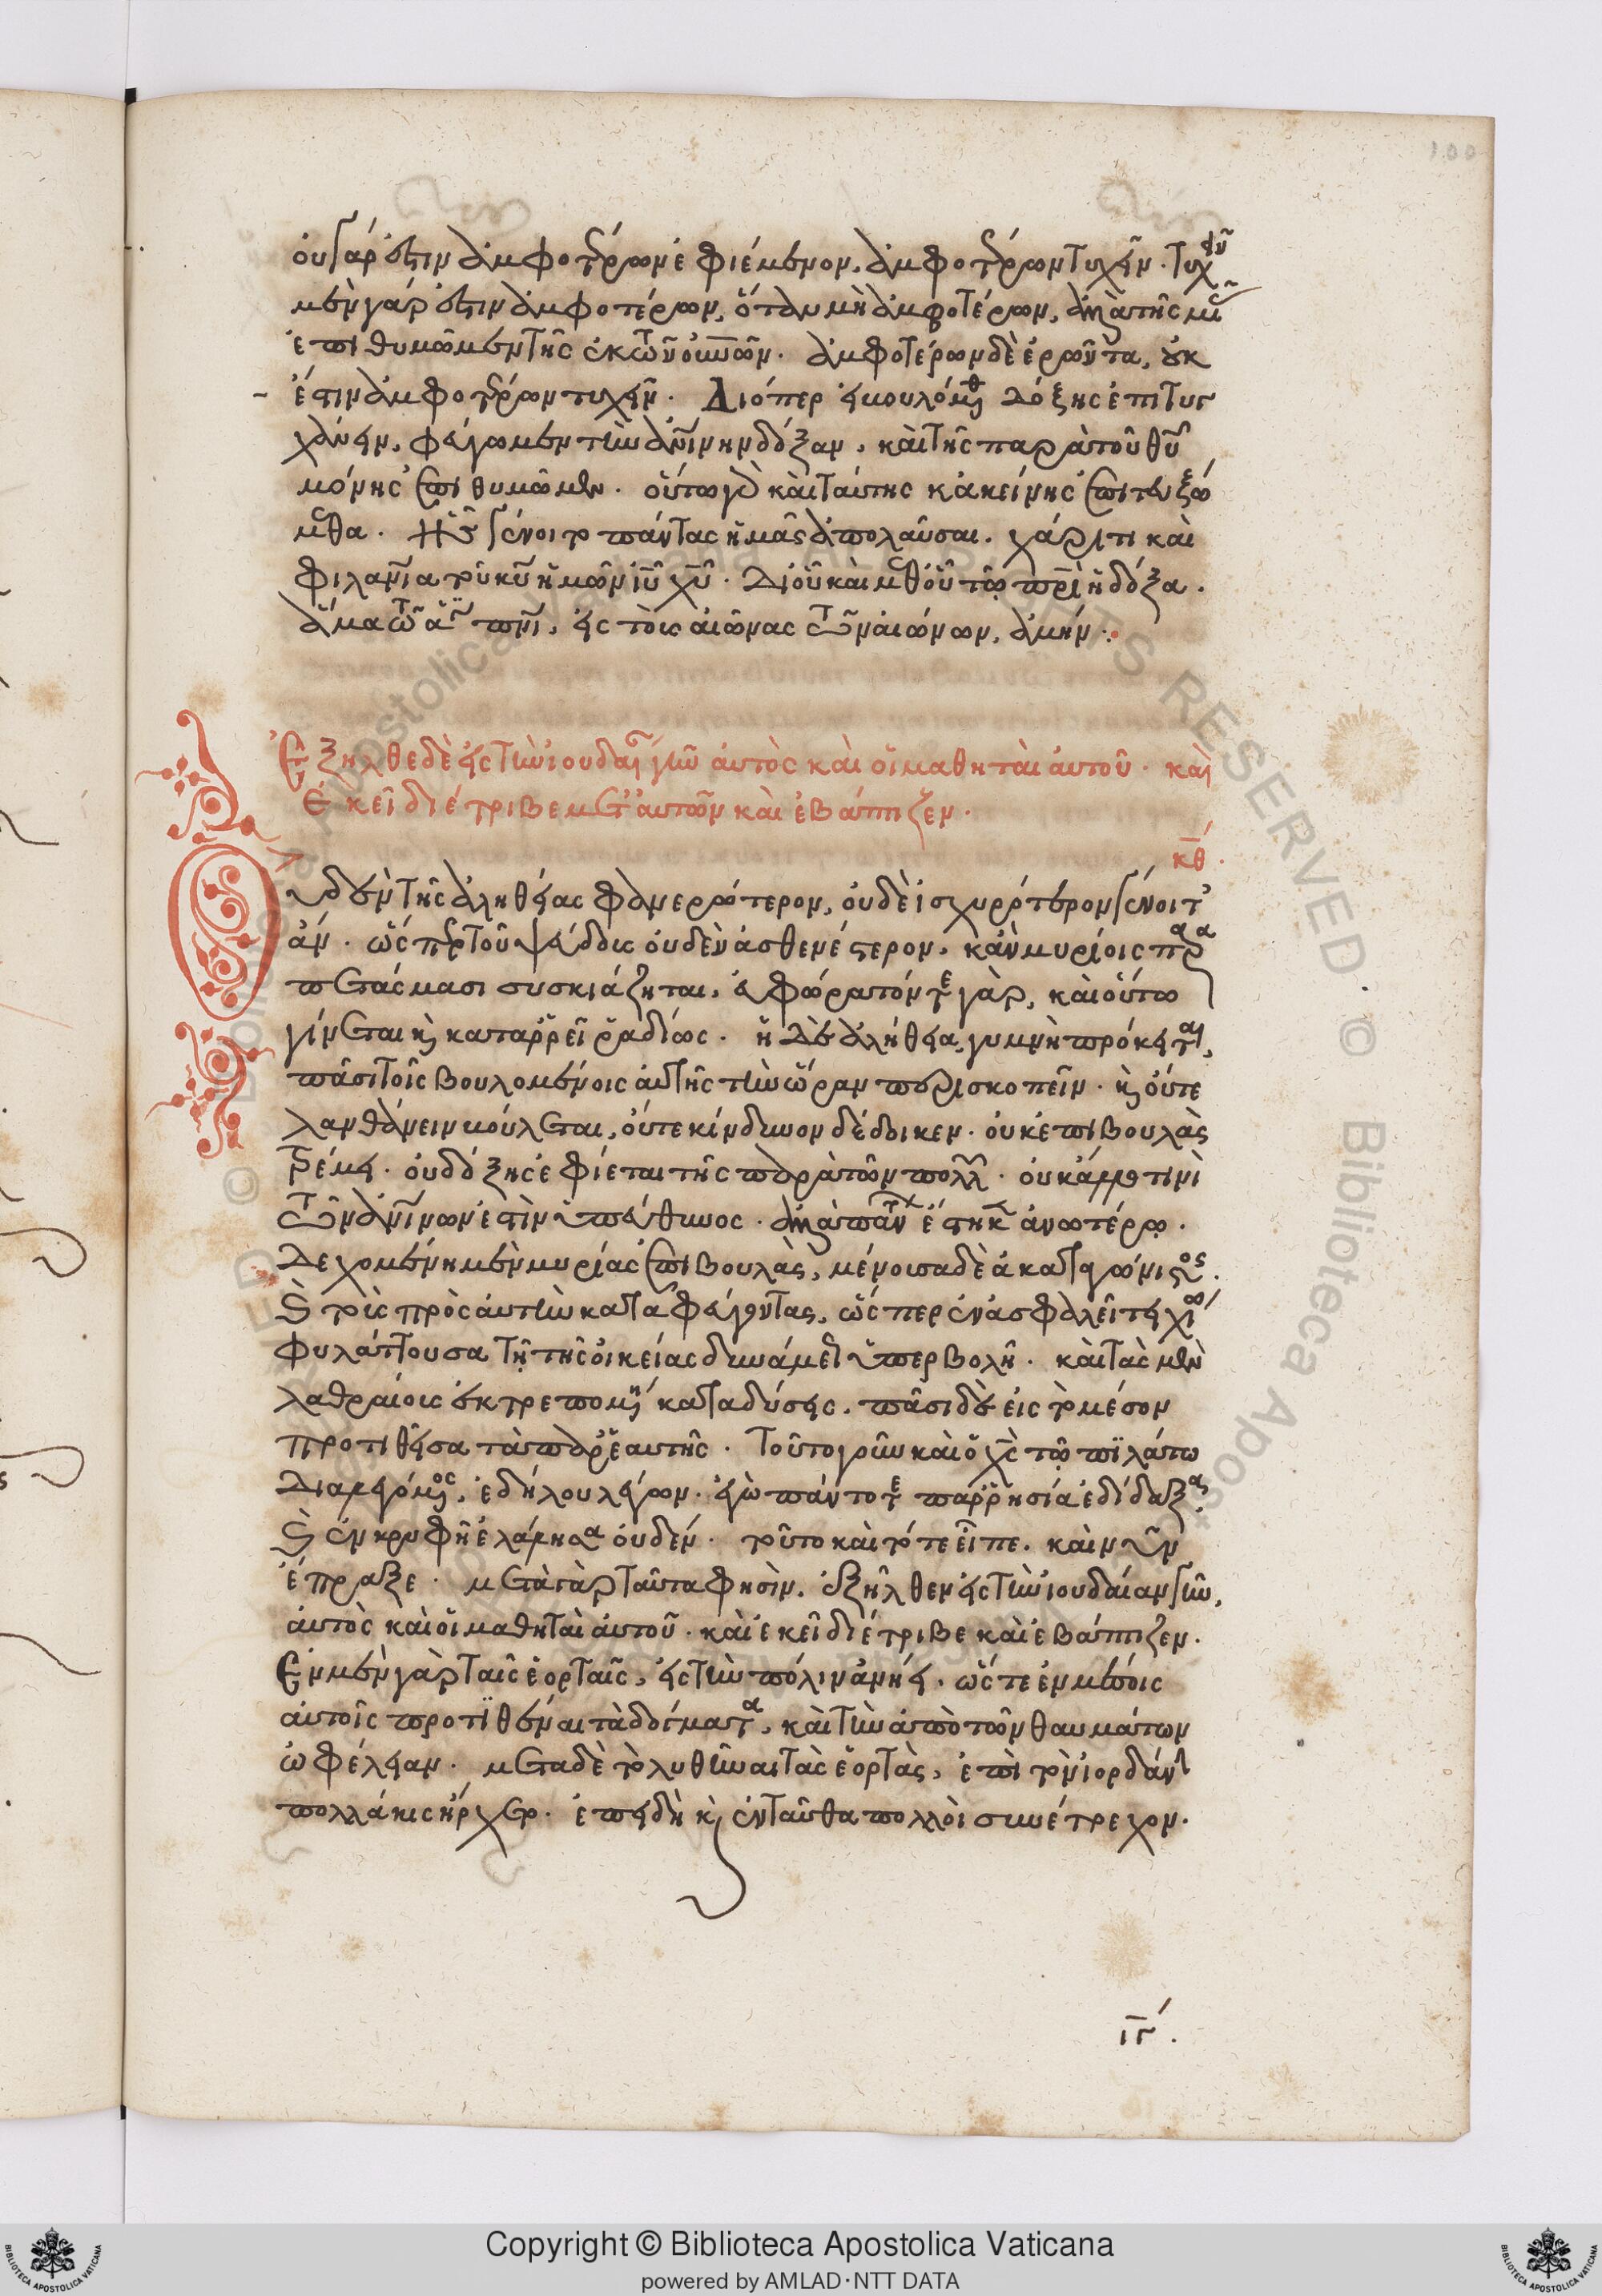 100
οὐ γάρ ἐστιν ἀμφοτέρων ἐφιέμενον, ἀμφοτέρων τυχεῖν. τυχεῖν
μὲν γάρ ἐστιν ἀμφοτέρων, ὅταν μὴ ἀμφοτέρων, ἀλλὰ τῆς μιᾶς
ἐπιθυμῶμεν τῆς ἐκ τῶν οὐνῶν. ἀμφοτέρων δὲ ἐρῶντα, οὐκ
ἔστιν ἀμφοτέρων τυχεῖν. Διόπερ εἰ βουλόμεθα δόξης ἐπιτυγ
χάνειν, φεύγωμεν τὴν ἀνίνην δόξαν, καὶ τῆς παρὰ τοῦ θυ
μόνης ἐπιθυμῶμεν. οὕτω γὰρ καὶ ταύτης κἀκείνης ἐπιτευξό
μεθα. ἧς γένοιτο πάντας ἡμᾶς ἀπολαῦσαι. χάριτι καὶ
φιλανία τοῦ κυ ἡμῶν ιυ χυ. δι' οὗ καὶ μεθ' οὗ τῷ πρὶ ἡ δόξα.
ἅμα τῷ ἁγ πνι, εἰς τοὺς αἰῶνας τῶν αἰώνων, ἀμήν.
Ἐξῆλθε δὲ εἰς τὴν ἰουδαίαν γῆν αὐτὸς καὶ οἱ μαθηταὶ αὐτοῦ. καὶ
ἐκεῖ διέτριβε μετ' αὐτῶν καὶ ἐβάπτιζεν.
κθ.
Οὐδὲν τῆς ἀληθείας φανερώτερον, οὐδὲ ἰσχυρότερον γένοιτ'
ἄν. ὥσπερ τοῦ ψεύδους οὐδὲν ἀσθενέστερον, κἂν μυρίοις παρα
πετάσμασι συσκιάζηται, εὐφώρατόν τε γὰρ, καὶ οὕτω
γίνεται καὶ καταρρεῖ ῥαδίως. ἡ δὲ ἀλήθεια, γυμνὴ πρόκειται,
πᾶσι τοῖς βουλομένοις αὐτῆς τὴν ὥραν περισκοπεῖν. καὶ οὔτε
λανθάνειν βούλεται, οὔτε κίνδυνον δέδοικεν. οὐκ ἐπιβουλὰς
τρέμει. οὐ δόξης ἐφίεται τῆς παρὰ τῶν πολλῶν. οὐκ ἄλλο τινὶ
τῶν ἀνίνων ἐστὶν ὑπεύθυνος. ἀλλὰ πάντων ἕστηκεν ἀνωτέρω.
δεχομένη μὲν μυρίας ἐπιβουλὰς, μένουσα δὲ ἀκαταγώνιστος.
καὶ τοὺς πρὸς αὐτὴν καταφεύγοντας, ὥσπερ ἐν ἀσφαλεῖ τειχίω
φυλάττουσα τῇ τῆς οἰκείας δυνάμει ὑπερβολῇ. καὶ τὰς μὲν
λαθραίους ἐκτρεπομένη καταδύσεις, πᾶσι δὲ εἰς τὸ μέσον
προτιθεῖσα τὰ παρ' ἑαυτῆς. Τοῦτο γοῦν καὶ ὁ χς τῷ πιλάτω
διαλεγόμενος, ἐδήλου λέγων. ἐγὼ πάντοτε παρρησία ἐδίδαξα,
καὶ ἐν κρυφῇ ἐλάλησα οὐδέν. τοῦτο καὶ τότε εἶπε. καὶ νῦν
ἔπραξε. μετὰ γὰρ ταῦτα φησὶν. ἐξῆλθεν εἰς τὴν ἰουδαίαν γῆν,
αὐτὸς καὶ οἱ μαθηταὶ αὐτοῦ. καὶ ἐκεῖ διέτριβε καὶ ἐβάπτιζεν.
Ἐν μὲν γὰρ ταῖς ἑορταῖς, εἰς τὴν πόλιν ἀνήει. ὥστε ἐν μέσοις
αὐτοῖς προτιθέναι τὰ δόγματα, καὶ τὴν ἀπὸ τῶν θαυμάτων
ὠφέλειαν. μετὰ δὲ τὸ λυθῆναι τὰς ἑορτὰς, ἐπὶ τὸν ἰορδάνην
πολλάκις ἤρχετο. ἐπειδὴ καὶ ἐνταῦθα πολλοὶ συνέτρεχον.
ιγ.
Copyright © Biblioteca Apostolica Vaticana
powered by AMLAD·NTT DATA